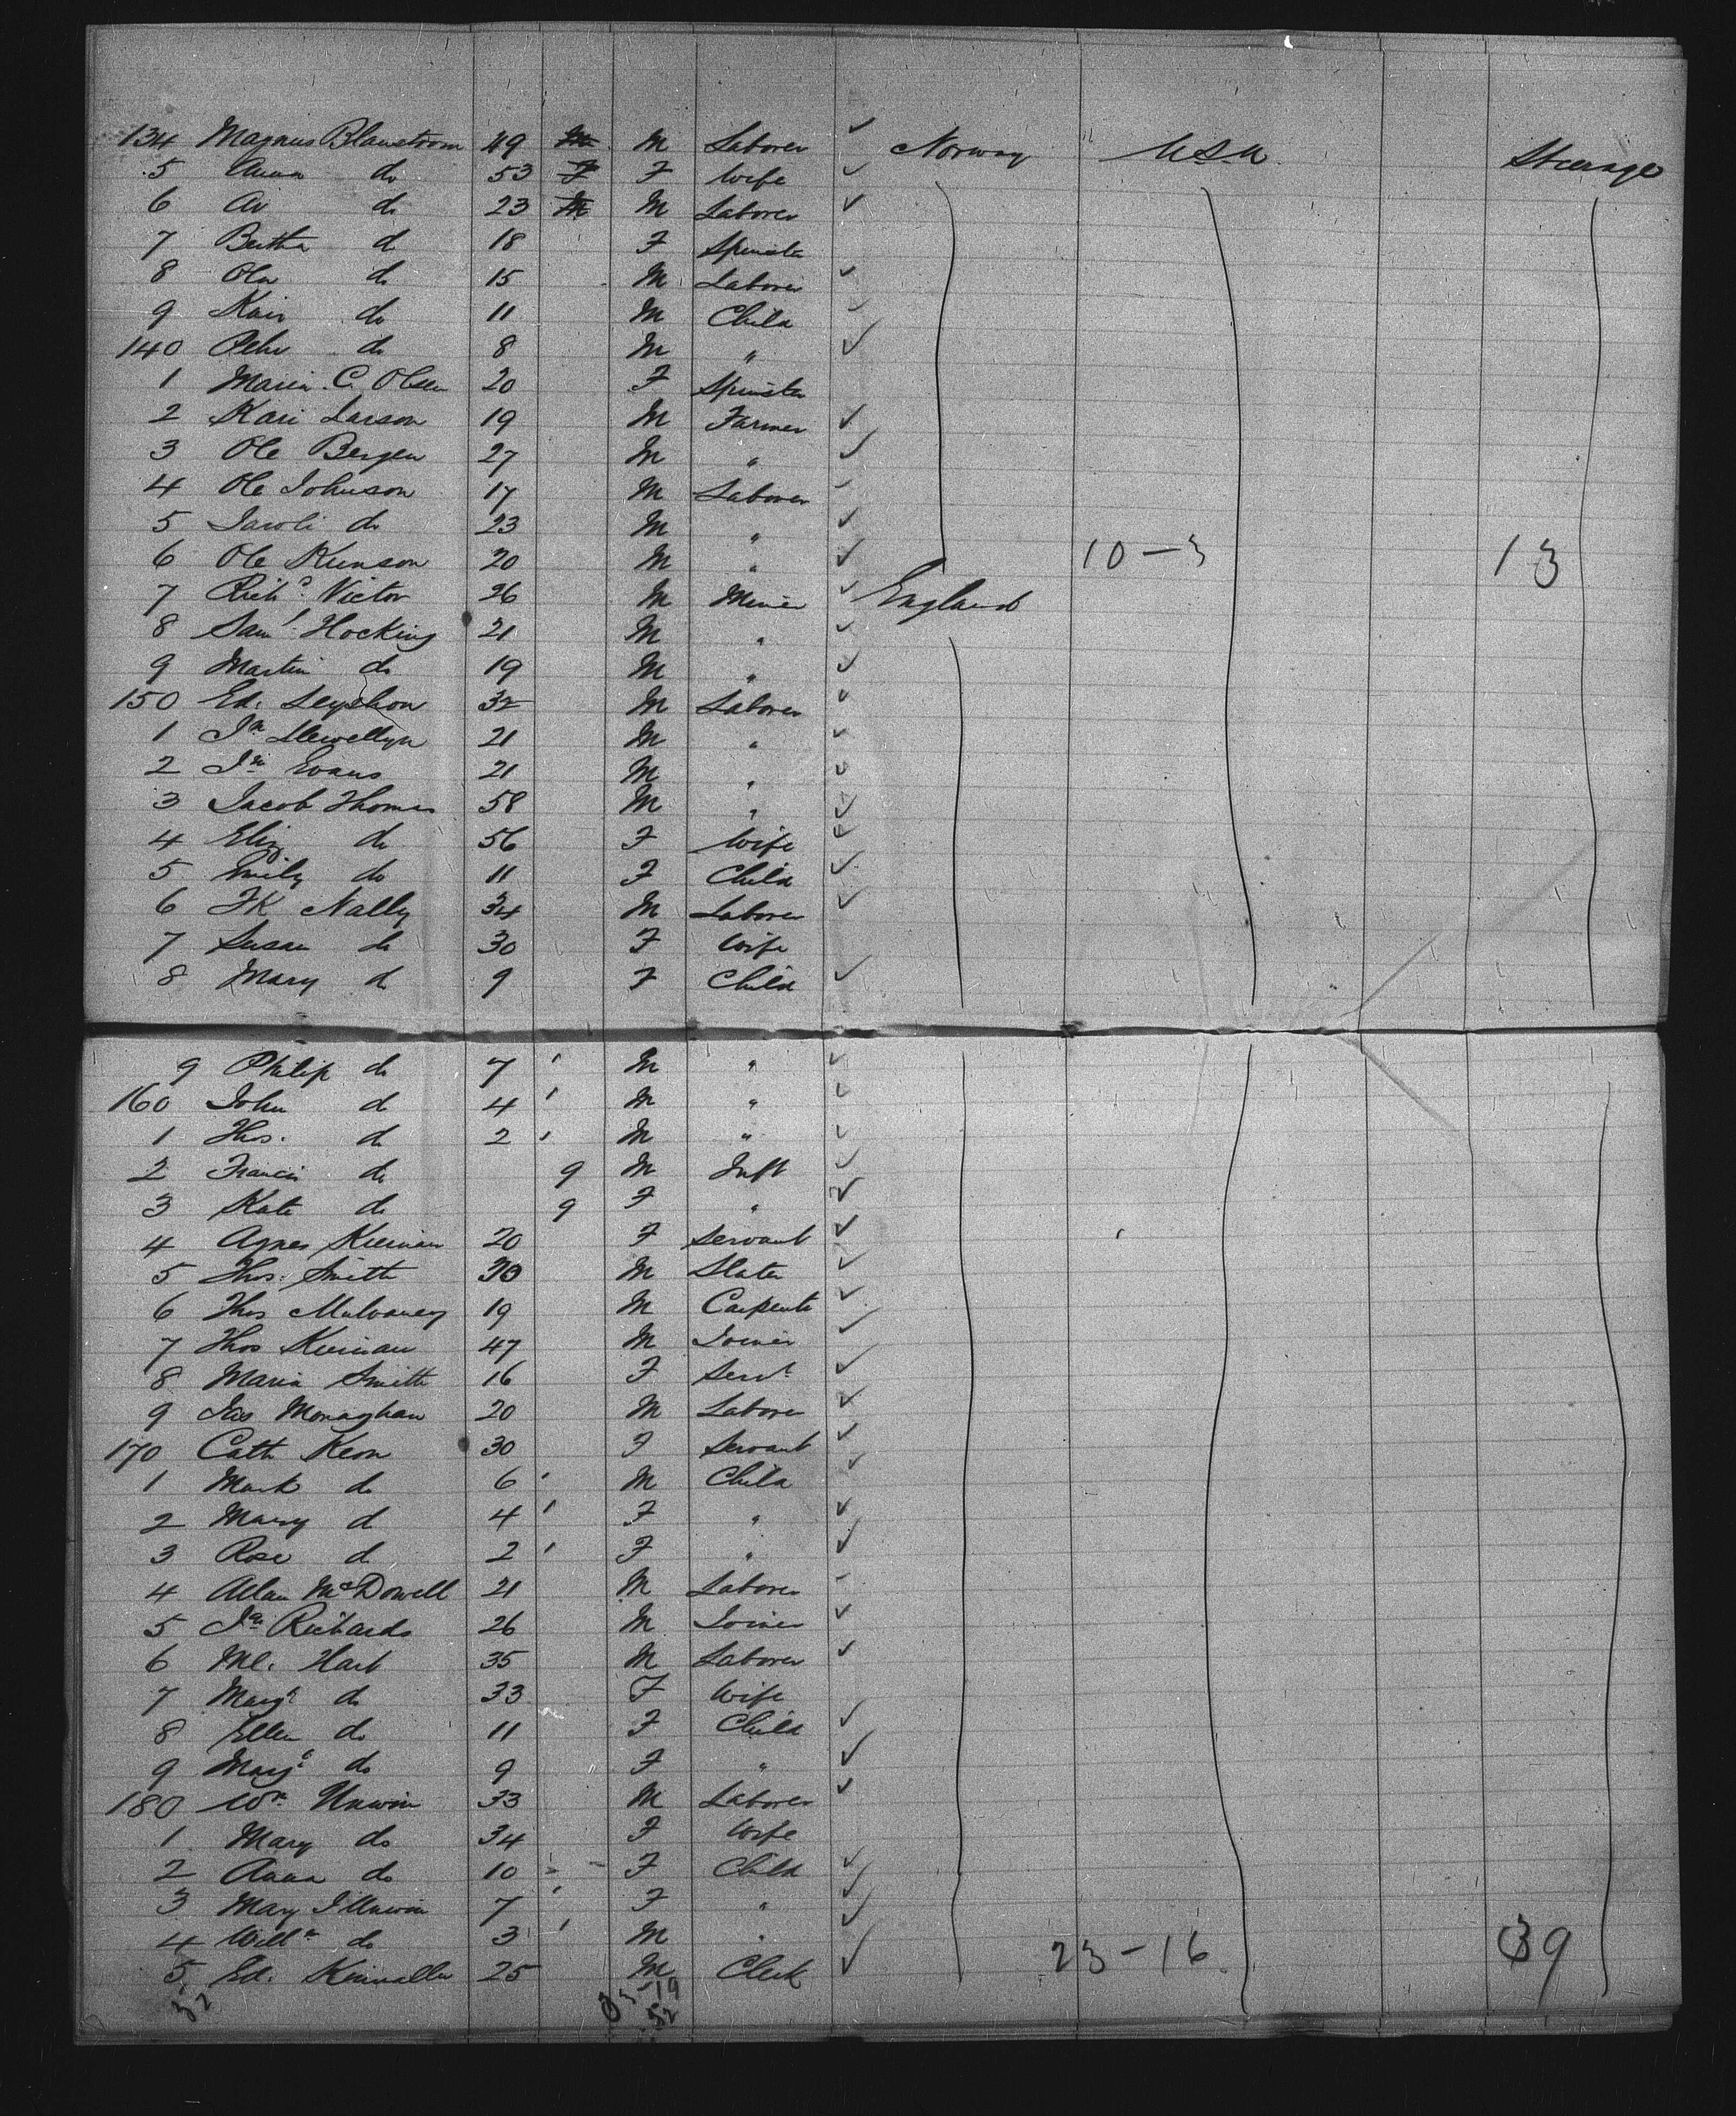 134 Magnus Blawstrom 49 M M Laborer ✓ Norway U.S.A. Steerage
5 Anna do 53 F F Wife ✓
6 do 23 M M Laborer ✓
7 Bertha do 18 F Spinster
8 Ola do 15 M Laborer ✓
9 do 11 M Child ✓
140 do 8 M " ✓
1 Maria C. Olsen 20 F Spinster
2 Kari Larson 19 M Farmer ✓
3 Ole Bergen 27 M " ✓
4 Ole Johnson 17 M Laborer ✓
5 do 23 M " ✓
6 Ole 20 M " ✓ 10-3 13
7 Richd. Victor 26 M Miner ✓ England
8 Saml. Hocking 21 M " ✓
9 Martin do 19 M " ✓
150 Ed. Leyshon 32 M Laborer ✓
1 Jn Llewellyn 21 M " ✓
2 Jn Evans 21 M " ✓
3 Jacob Thomas 58 M " ✓
4 Eliz do 56 F Wife ✓
5 Emily do 11 F Child ✓
6 Nally 34 M Laborer ✓
7 Susan do 30 F Wife
8 Mary do 9 F Child ✓
9 Philip do 7 M " ✓
160 John do 4 M " ✓
1 Thos. do 2 M " ✓
2 Francis do 9 M Inft ✓
3 Kate do 9 F " ✓
4 Agnes Kiernan 20 F Servant ✓
5 Thos. Smith 30 M Slater ✓
6 Thos Mulvaney 19 M Carpentr ✓
7 Thos Kiernan 47 M Joiner ✓
8 Maria Smith 16 F Servt ✓
9 Jas Monaghan 20 M Laborer ✓
170 Cath Keon 30 F Servant ✓
1 Mark do 6 M Child ✓
2 Mary do 4 F " ✓
3 Rose do 2 F " ✓
4 Allan McDowell 21 M Laborer
5 Jas Richards 26 M Joiner ✓
6 Ml. Hart 35 M Laborer ✓
7 Margt do 33 F Wife
8 Ellen do 11 F Child ✓
9 Margt do 9 F " ✓
180 Wm. Unwin 33 M Laborer ✓
1 Mary do 34 F Wife
2 Anna do 10 F Child ✓
3 Mary J Unwin 7 F " ✓
4 Willm do 3 M " ✓ 23-16 39
5 Ed. 25 M Clerk ✓
52 33-19
52